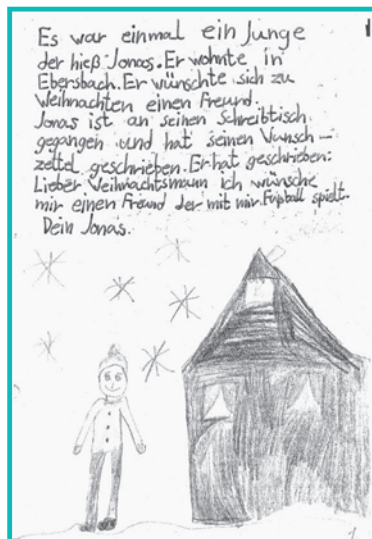 Es war einmal ein Junge
der hieß Jonas. Er wohnte in
Ebersbach. Er wünschte sich zu
Weihnachten einen Freund.
Jonas ist an seinen Schreibtisch
gegangen und hat seinen Wunsch-
zettel geschrieben. Er hat geschrieben:
Lieber Weihnachtsmann ich wünsche
mir einen Freund der mit mir Fußball spielt.
Dein Jonas.
1